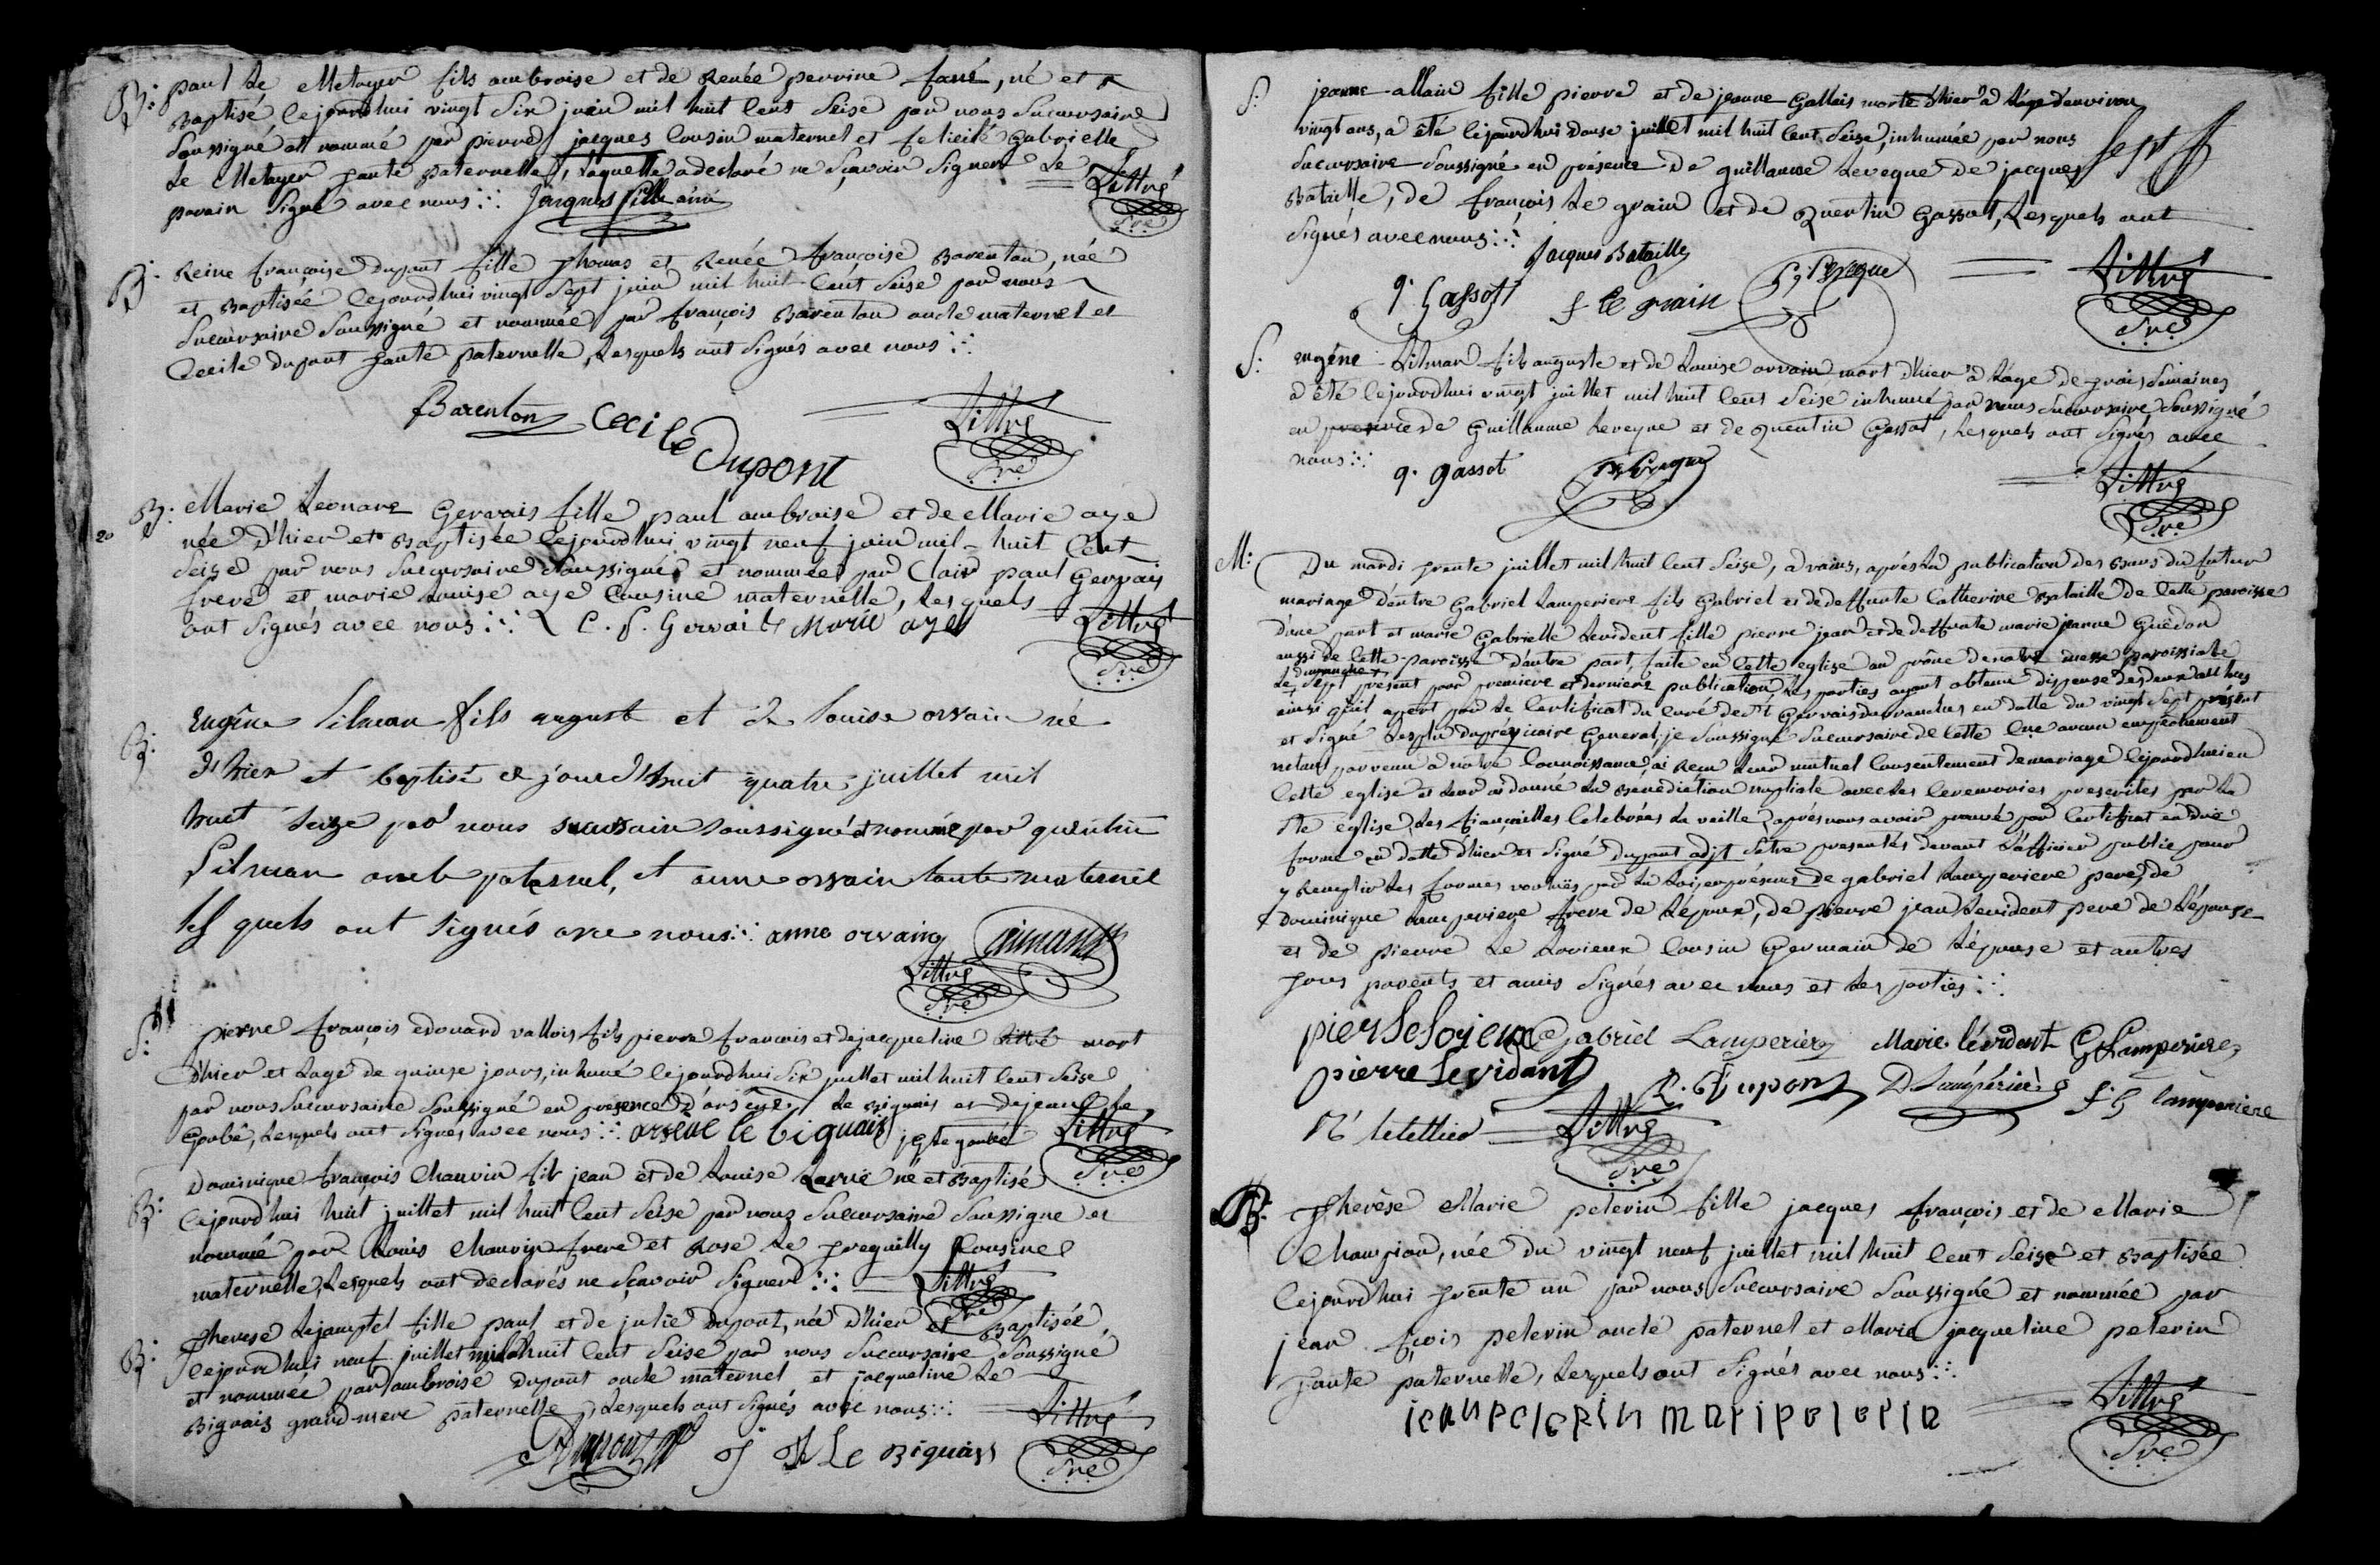 B: paul Le Metayer fils ambroise et de Renée perrine , né et
Baptisé cejourdhui vingt six juin mil huit cent seise par nous succursaire
soussigné et nommé par pierre jacques cousin maternel et felicité Gabrielle
Le Metayer tante paternelle, laquelle a declaré ne sçavoir signer Le
parain signé avec nous∴ Littré
Sre
B: Reine françoise dupont fille thomas et Renée françoise Barenton, née
et Baptisée cejourdhui vingt sept juin mil huit cent seise par nous
succursaire soussigné et nommée par françois Barenton oncle maternel et
Cecile dupont tante paternelle, Lesquels ont signés avec nous∴
Barenton Cecile Dupont Littré
Sre
20 B: Marie Leonare Gervais fille paul ambroise et de Marie aye
née d'hier et Baptisée cejourdhui vingt neuf juin mil huit cent
seise par nous succursaire soussigné et nommée par Clair paul Gervais
frere et marie Louise aye cousine maternelle, Lesquels
ont signés avec nous∴ C. p. Gervais Marie aye Littré
Sre
B: Eugêne Silman fils auguste et de Louise orvain né
d'hier et baptisé ce jourd'huit quatre juillet mil
huct seize par nous succursair soussigné et nommé par quentin
Silman oncle paternel, et anne orvain tante maternel
lesquels ont signés avec nous∴ anne orvain
Littré
Sre
S: pierre françois edouard vallois fils pierre francois et de jacqueline Littré mort
d'hier et Lagé de quinse jours, inhumé cejourdhui six juillet mil huit cent seise
par nous succursaire soussigné en presence d'arsêne Le Biguais et de jean Le
Goubé, Lesquels ont signés avec nous∴ arsene le biguais Littré
Sre
B: Dominique françois Chauvin fils jean et de Louise Larue né et Baptisé
cejourdhui huit juillet mil huit cent seise par nous succursaire soussigné et
nommé par Louis Chauvin frere et Rose Le Treguilly cousine
maternelle, Lesquels ont declarés ne sçavoir signer∴ Littré
Sre
B: Therese Lejamptel fille paul et de julie Dupont, née d'hier et Baptisée
cejourdhui neuf juillet mil huit cent seise par nous succursaire soussigné
et nommée par ambroise dupont oncle maternel et jacqueline Le
Biguais grand-mere paternelle, Lesquels ont signés avec nous∴ Littré
Dupont Le Biguais Sre
S: jeanne allain fille pierre et de jeanne Gallais morte d'hier à L'age d'environ
vingt ans, a été cejourdhui douse juillet mil huit cent seise, inhumée par nous
succursaire soussigné en présence de guillaume Leveque de jacques
Bataille, de françois Le grain et de Quentin Gassot, Lesquels ont
signés avec nous∴ jacques Bataille
q. Gassot f le grain Littré
Sre
S: eugêne Silman fils auguste et de Louise orvain mort d'hier à Lage de trois semaines
a été cejourdhui vingt juillet mil huit cent seise inhumé par nous succursaire soussigné
en presence de Guillaume Leveque et de Quentin Gassot, Lesquels ont signés avec
nous∴ q. gassot Littré
Sre
M: Du mardi trente juillet mil huit cent seise, à rains, après La publication des Bans du futur
mariage d'entre Gabriel Lamperiere fils Gabriel et de deffunte Catherine Bataille de cette paroisse
d'une part et marie Gabrielle Levident fille pierre jean et de deffunte marie jeanne Guêdon
aussi de cette paroisse d'autre part, faite en cette eglise au prône de notre messe paroissiale
Le dimanche sept présent pour premiere et derniere publication, Les parties ayant obtenu dispense des deux autres
ainsi qu'il apert par Le certificat du curé de st Gervais en datte du vingt sept présent
et signé vicaire General, je soussigné succursaire de cette Eue aucun empêchement
n'étant parvenu à notre connoissance ai Recu Leur mutuel consentement de mariage cejourdhui en
cette eglise et Leur ai donné La Benédiction nuptiale avec Les ceremonies prescrites par La
ste eglise, Les fiançailles célebrées La veille, après nous avoir prouvé par certificat en due
forme en datte d'hier et signé dupont adjt s'etre presentés devant L'officier public pour
y Remplir Les formes voulues par La Loi, en présence de gabriel Lamperiere pere, de
dominique Lamperiere frere de L'époux, de pierre jean Levident pere de L'épouse
et de pierre Le cousin Germain de L'épouse et autres
tous parents et amis signés avec nous et Les parties∴
Gabriel Lamperiere Marie lévident G Lamperiere
pierre Levidant Dupont D Lampérière f g Lamperiere
letellier Littré
Sre
B: Therèse Marie pelerin fille jacques françois et de Marie
Champion, née du vingt neuf juillet mil huit cent seise et Baptisée
cejourdhui trente un par nous succursaire soussigné et nommée par
jean fçois pelerin oncle paternel et Marie jacqueline pelerin
tante paternelle, Lesquels ont signés avec nous∴
jean pelerin mari pelerin Littré
Sre